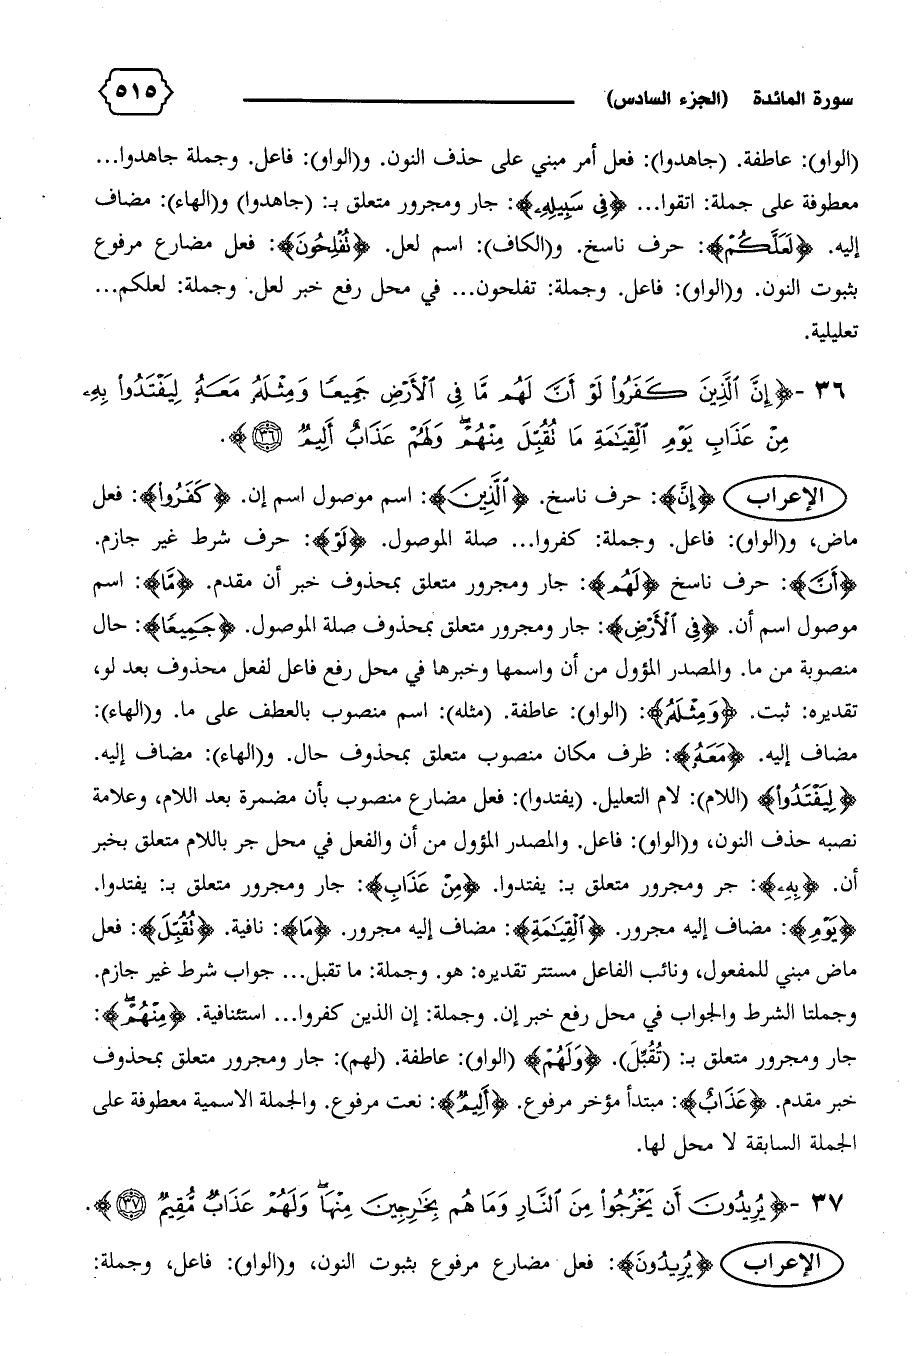 سورة المائدة (الجزء السادس) ٥١٥
(الواو): عاطفة. (جاهدوا): فعل أمر مبني على حذف النون. و(الواو): فاعل. وجملة جاهدوا...
معطوفة على جملة: اتقوا... ﴿فِي سَبِيلِهِ﴾: جار ومجرور متعلق بـ: (جاهدوا) و(الهاء): مضاف
إليه. ﴿لَعَلَّكُمْ﴾: حرف ناسخ. و(الكاف): اسم لعل. ﴿تُفْلِحُونَ﴾: فعل مضارع مرفوع
بثبوت النون. و(الواو): فاعل. وجملة: تفلحون... في محل رفع خبر لعل. وجملة: لعلكم...
تعليلية.
٣٦ -﴿إِنَّ الَّذِينَ كَفَرُواْ لَوْ أَنَّ لَهُم مَّا فِي الْأَرْضِ جَمِيعًا وَمِثْلَهُ مَعَهُ لِيَفْتَدُواْ بِهِ
مِنْ عَذَابِ يَوْمِ الْقِيَامَةِ مَا تُقُبِّلَ مِنْهُمْ وَلَهُمْ عَذَابٌ أَلِيمٌ ٣٦﴾.
الإعراب ﴿إِنَّ﴾: حرف ناسخ. ﴿الَّذِينَ﴾: اسم موصول اسم إن. ﴿كَفَرُواْ﴾: فعل
ماض، و(الواو): فاعل. وجملة: كفروا... صلة الموصول. ﴿لَوْ﴾: حرف شرط غير جازم.
﴿أَنَّ﴾: حرف ناسخ ﴿لَهُم﴾: جار ومجرور متعلق بمحذوف خبر أن مقدم. ﴿مَّا﴾: اسم
موصول اسم أن. ﴿فِي الْأَرْضِ﴾: جار ومجرور متعلق بمحذوف صلة الموصول. ﴿جَمِيعًا﴾: حال
منصوبة من ما. والمصدر المؤول من أن واسمها وخبرها في محل رفع فاعل لفعل محذوف بعد لو،
تقديره: ثبت. ﴿وَمِثْلَهُ﴾: (الواو): عاطفة. (مثله): اسم منصوب بالعطف على ما. و(الهاء):
مضاف إليه. ﴿مَعَهُ﴾: ظرف مكان منصوب متعلق بمحذوف حال. و(الهاء): مضاف إليه.
﴿لِيَفْتَدُواْ﴾ (اللام): لام التعليل. (يفتدوا): فعل مضارع منصوب بأن مضمرة بعد اللام، وعلامة
نصبه حذف النون، و(الواو): فاعل. والمصدر المؤول من أن والفعل في محل جر باللام متعلق بخبر
أن. ﴿بِهِ﴾: جر ومجرور متعلق بـ: يفتدوا. ﴿مِنْ عَذَابِ﴾: جار ومجرور متعلق بـ: يفتدوا.
﴿يَوْمِ﴾: مضاف إليه مجرور. ﴿الْقِيَامَةِ﴾: مضاف إليه مجرور. ﴿مَا﴾: نافية. ﴿تُقُبِّلَ﴾: فعل
ماض مبني للمفعول، ونائب الفاعل مستتر تقديره: هو. وجملة: ما تقبل... جواب شرط غير جازم.
وجملتا الشرط والجواب في محل رفع خبر إن. وجملة: إن الذين كفروا... استئنافية. ﴿مِنْهُمْ﴾:
جار ومجرور متعلق بـ: (تُقُبِّلَ). ﴿وَلَهُمْ﴾ (الواو): عاطفة. (لهم): جار ومجرور متعلق بمحذوف
خبر مقدم. ﴿عَذَابٌ﴾: مبتدأ مؤخر مرفوع. ﴿أَلِيمٌ﴾: نعت مرفوع. والجملة الاسمية معطوفة على
الجملة السابقة لا محل لها.
٣٧ -﴿يُرِيدُونَ أَن يَخْرُجُواْ مِنَ النَّارِ وَمَا هُم بِخَارِجِينَ مِنْهَا وَلَهُمْ عَذَابٌ مُّقِيمٌ ٣٧﴾.
الإعراب ﴿يُرِيدُونَ﴾: فعل مضارع مرفوع بثبوت النون، و(الواو): فاعل، وجملة: